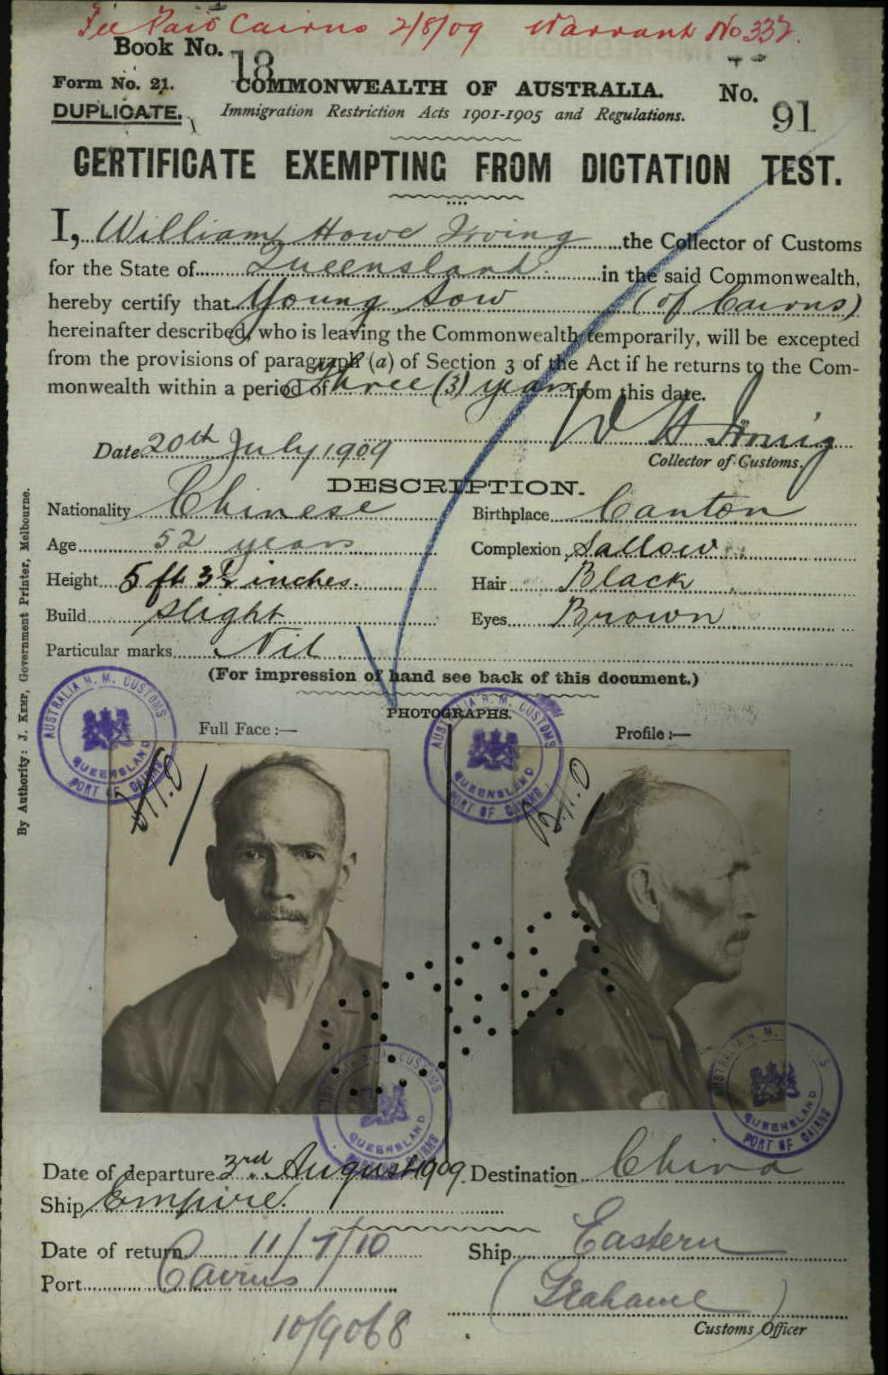 Fee Paid Cairns 2/8/09 Warrant No 332.
Book No. 18
Form No. 21. COMMONWEALTH OF AUSTRALIA. No. 91
DUPLICATE. Immigration Restriction Acts 1901-1905 and Regulations.
CERTIFICATE EXEMPTING FROM DICTATION TEST.
I, William Howe Irving the Collector of Customs
for the State of Queensland in the said Commonwealth,
hereby certify that Young Sow (of Cairns)
hereinafter described, who is leaving the Commonwealth temporarily, will be excepted
from the provisions of paragraph (a) of Section 3 of the Act if he returns to the Com-
monwealth within a period of three (3) years from this date.
W H Irving
Date 20th July 1909
Collector of Customs.
DESCRIPTION.
Nationality Chinese Birthplace Canton
Age 52 years Complexion Sallow
Height 5 ft 3½ inches. Hair Black
Build slight Eyes Brown
Particular marks Nil
(For impression of hand see back of this document.)
PHOTOGRAPHS.
Full Face :— Profile :—
AUSTRALIA H. M. CUSTOMS QUEENSLAND PORT OF CAIRNS
AUSTRALIA H. M. CUSTOMS QUEENSLAND PORT OF CAIRNS
QUEENSLAND
QUEENSLAND PORT OF CAIRNS
Date of departure 3rd August 1909 Destination China
Ship Empire.
Date of return 11/7/10 Ship Eastern
Port Cairns (Grahame)
Customs Officer
10/9068
By Authority: J. KEMP, Government Printer, Melbourne.